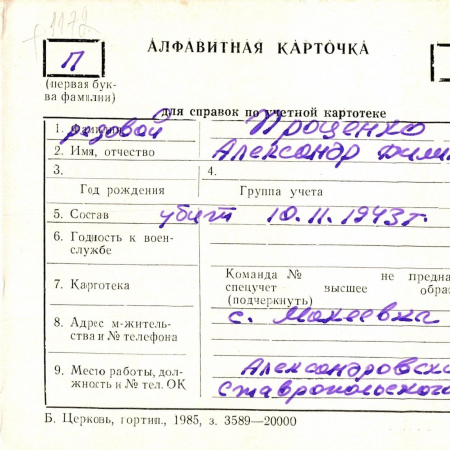 † 1172
П
АЛФАВИТНАЯ КАРТОЧКА
(первая бук-
ва фамилии)
для справок по учетной картотеке
1. Фамилия рядовой Проценко
2. Имя, отчество Александр Фили
3. 4.
Год рождения Группа учета
5. Состав убит 10.11.1943г.
6. Годность к воен-
службе
Команда № не предна
7. Карточка спецучет высшее обра
(подчеркнуть)
8. Адрес м-житель-
ства и № телефона с. Мокеевка
9. Место работы, дол- Александровско
жность и № тел. ОК Ставропольского
Б. Церковь, гортип., 1985, з. 3589—20000